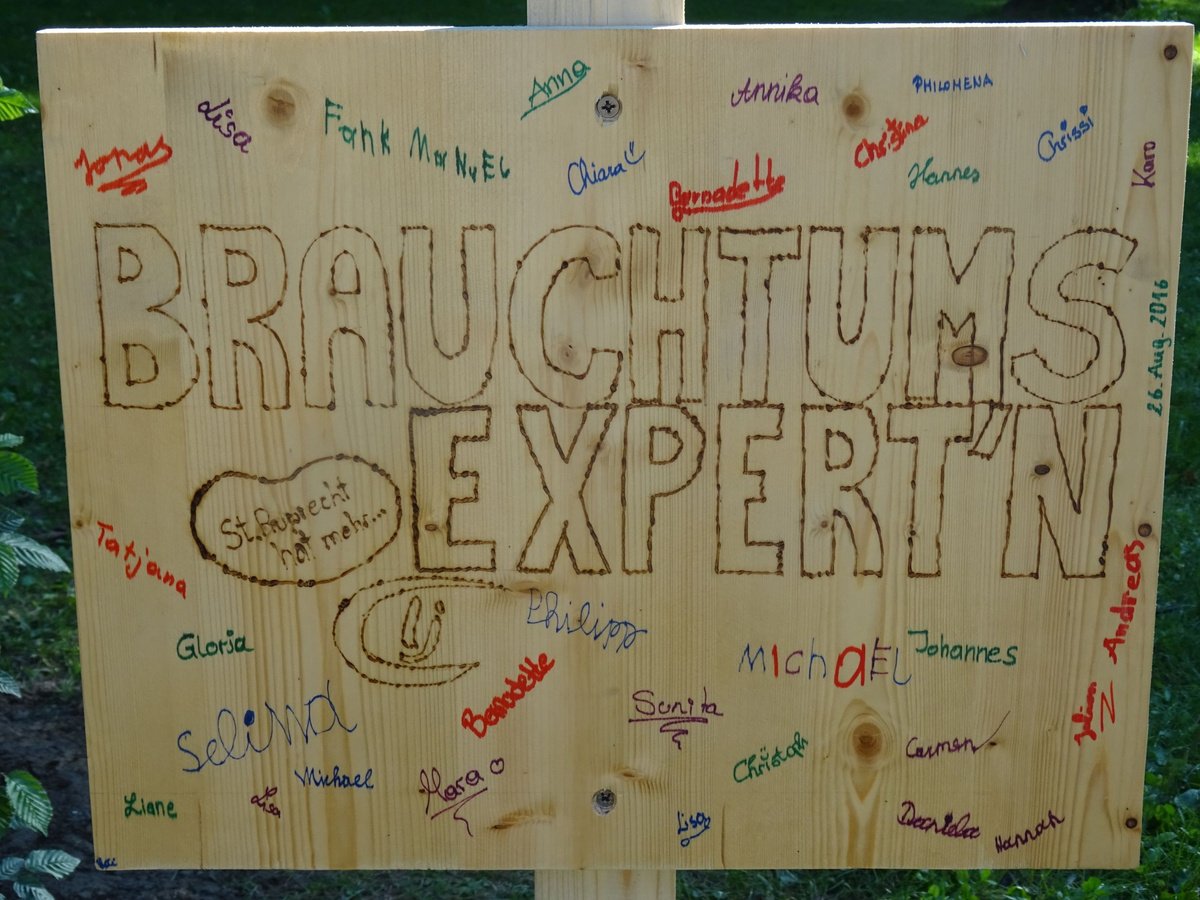 Anna
Annika
PHILOMENA
Lisa
Fank
MaNuEL
Christina
Crissi
Jonas
Chiara
Bernadette
Hannes
Karo
BRAUCHTUMS
26. Aug. 2016
EXPERT'N
St. Ruprecht
hat mehr...
Tatjana
Andreas
Philipp
Gloria
MIchaEL
Johannes
Bernadette
Selina
Sunita
Julian
Michael
Mara
Christoph
Carmen
Liane
Lisa
Lisa
Daniela
Hannah